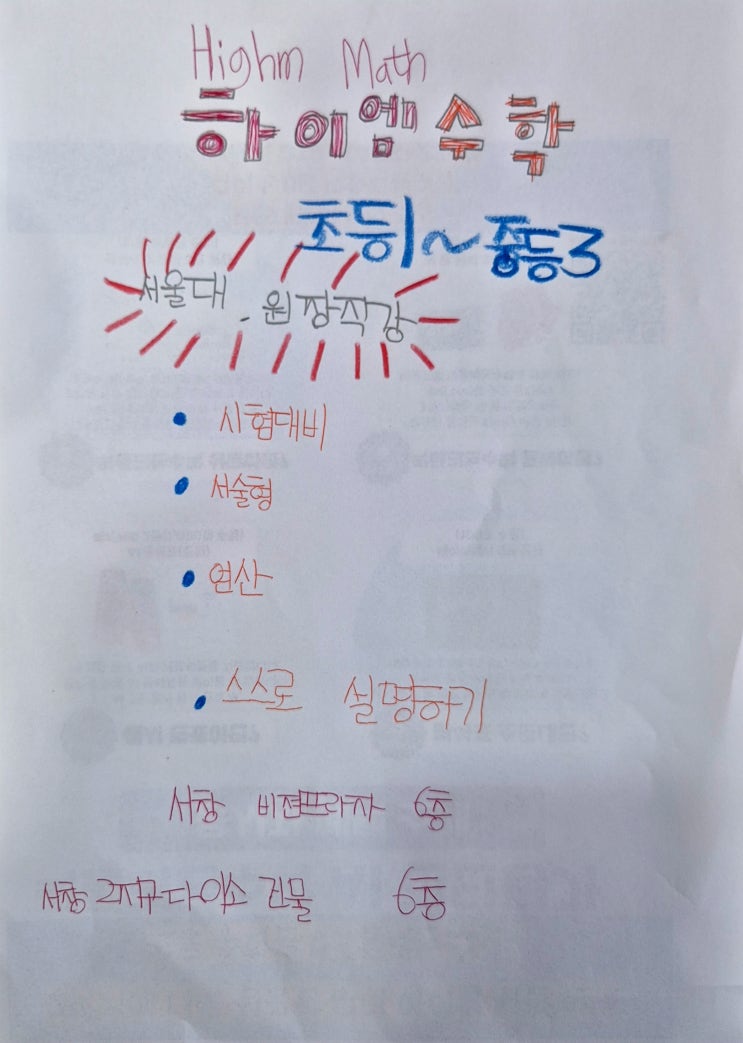 Highm Math
하이엠수학
초등1~중등3
서울대. 원장직강
• 시험대비
• 서술형
• 연산
• 스스로 설명하기
서창 비젼프라자 6층
서창 2지구 다이소 건물 6층